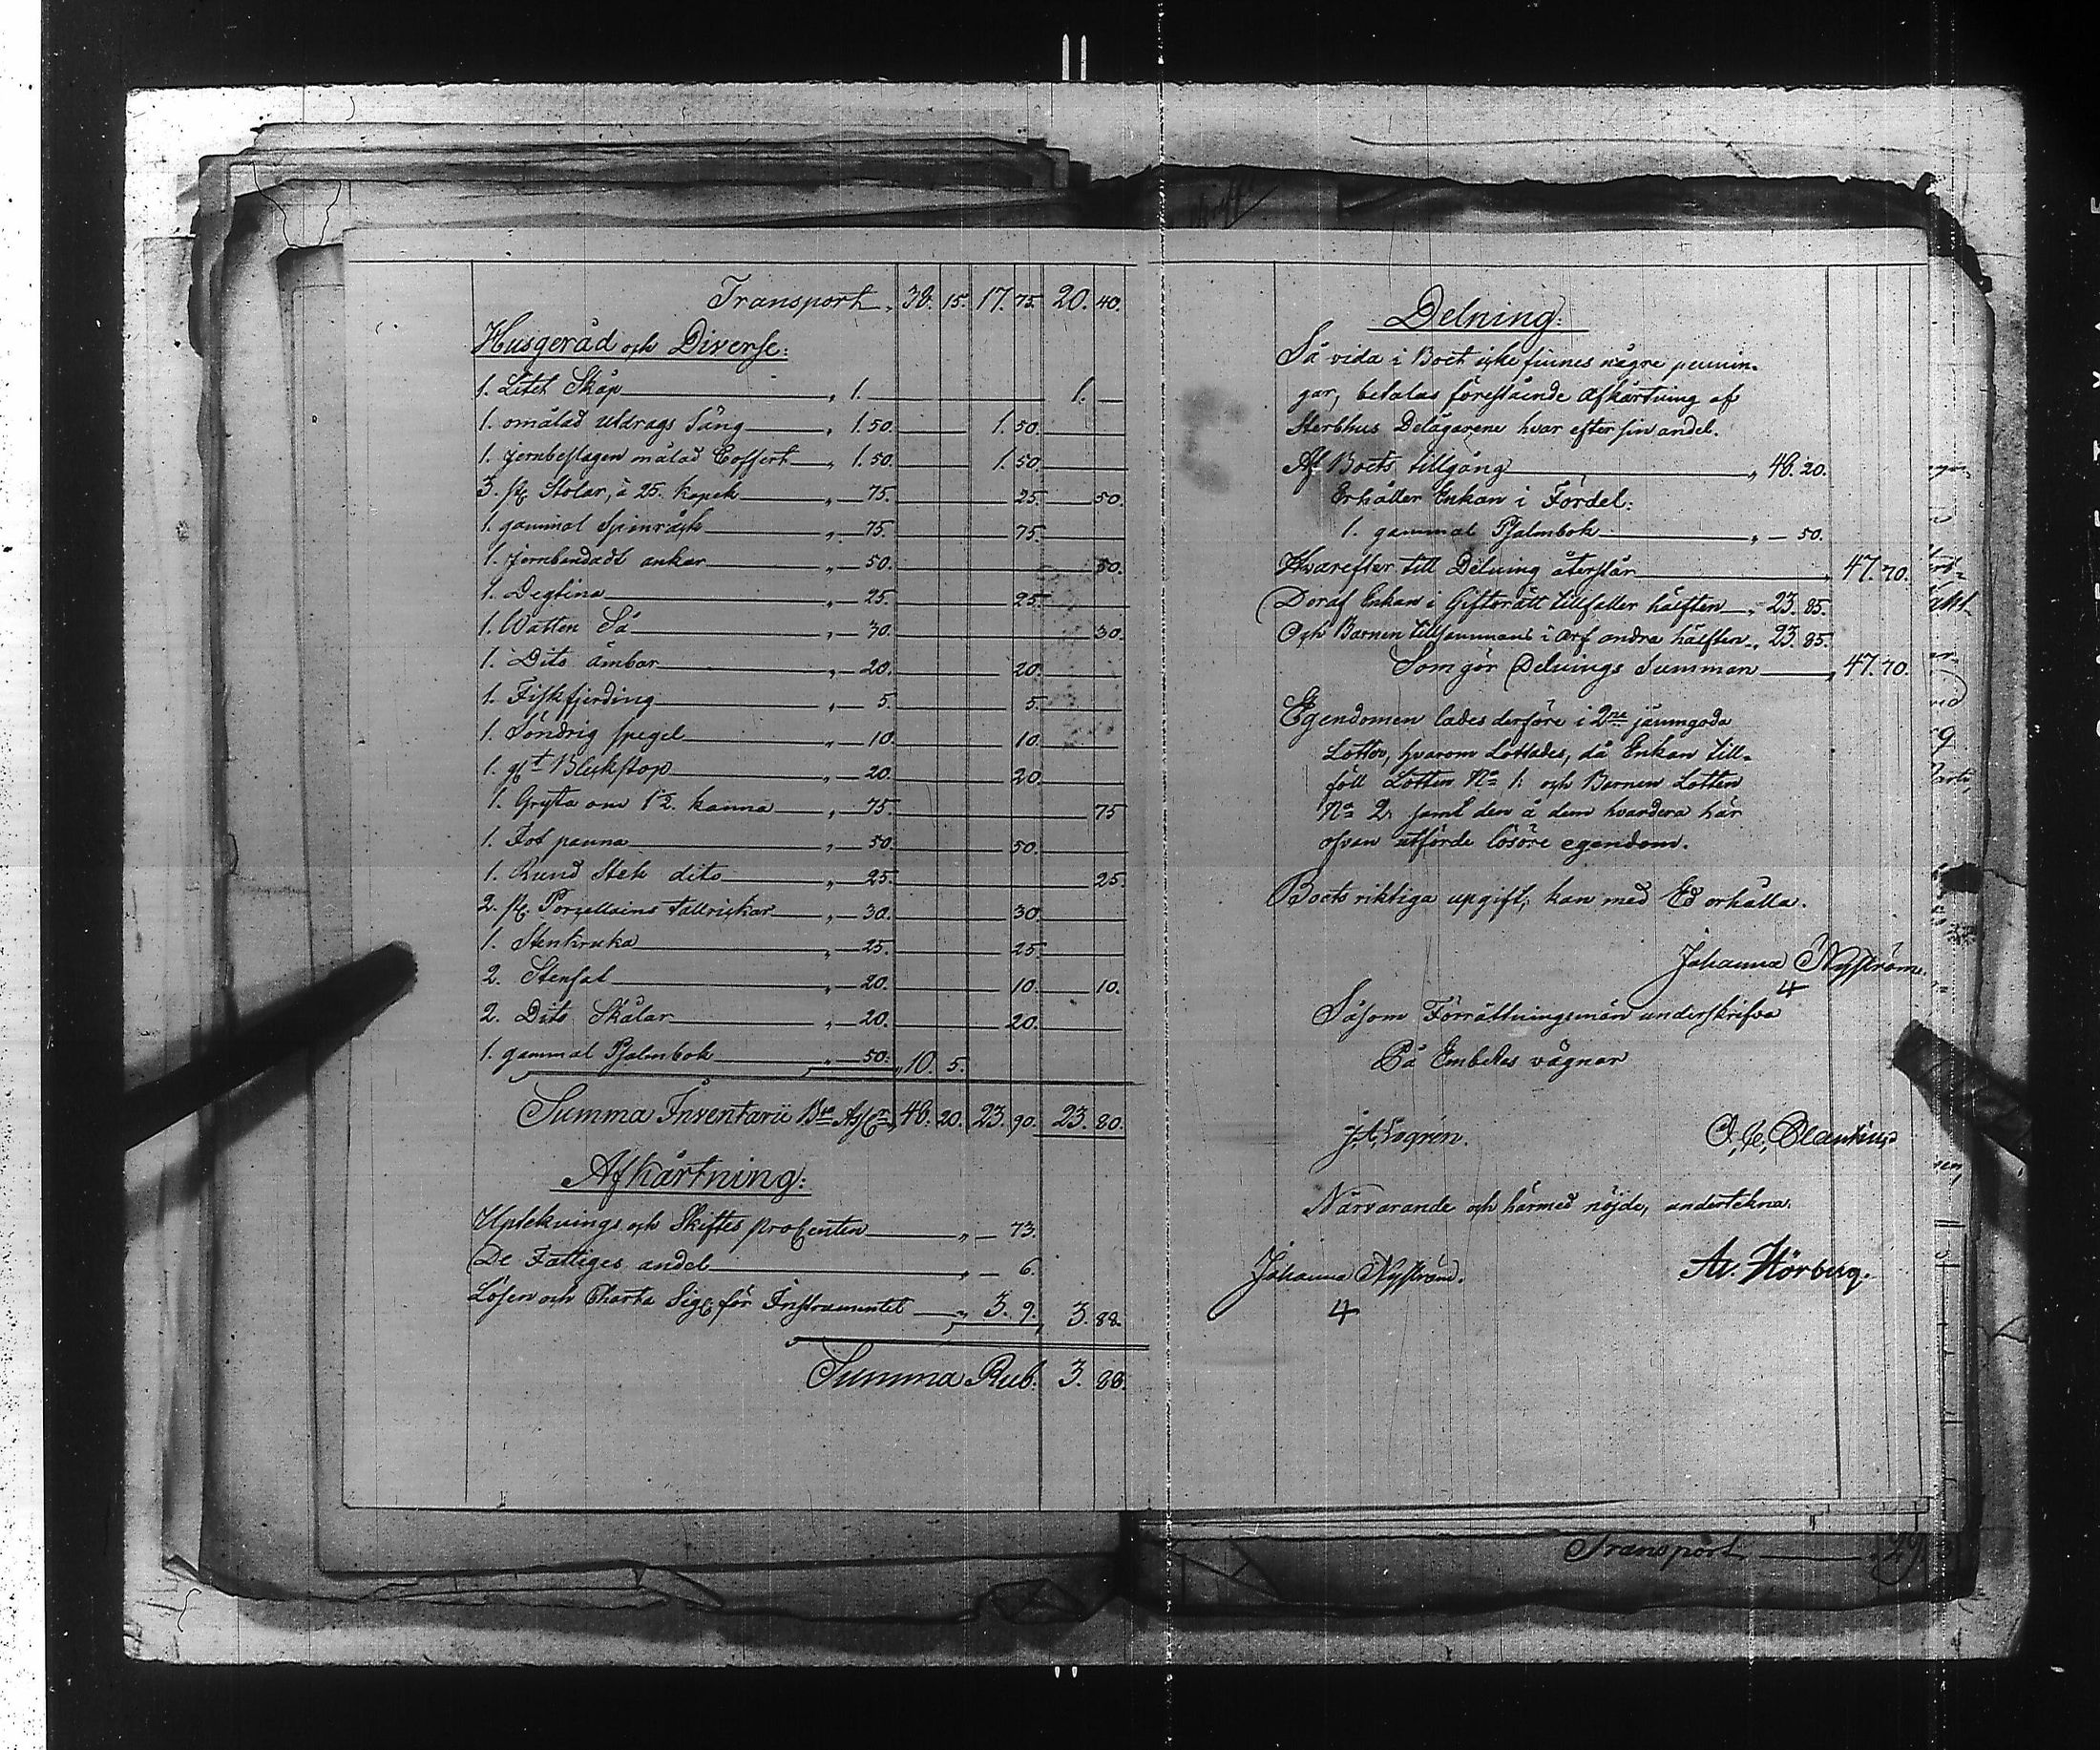 Transport „ 38. 15. 17. 75. 20. 40.
Husgeråd och Diverse:
1. Litet Skåp „ 1. 1. —
1. omålad Utdrags Säng „ 1. 50. 1. 50.
1. jernbeslagen målad Coffert „ 1. 50. 1. 50.
3. st. Stolar, à 25. kopek „ — 75. 25. 50.
1. gammal Spinråck „ — 75. 75.
1. jernbandadt ankar „ — 50. 50.
1. Degtina „ — 25. 25.
1. Watten Så „ — 30. 30.
1. Dito ämbar „ — 20. 20.
1. Fiskfjerding „ — 5. 5.
1. Söndrig spegel „ — 10. 10.
1. Bleckstop „ — 20. 20.
1. Gryta om 1½. kanna „ — 75. 75
1. Fot panna „ — 50. 50.
1. Rund Stek dito „ — 25. 25.
2. st. Porzellains tallrickar „ — 30. 30.
1. Stenkruka „ — 25. 25.
2. Stenfat „ — 20. 10. 10.
2. Dito Skålar „ — 20. 20.
1. gammal Psalmbok „ — 50. „ 10. 5.
Summa Inventarii 48. 20. 23. 90. 23. 80.
Afkårtning:
Upteknings och Skiftes procenten „ — 73.
De Fattiges andel „ — 6.
Lösen och Charta Sig. för Instrumentet „ 3. 9. 3. 88.
Summa Rub. 3. 88.
Delning:
Så vida i Boet icke finnes några pennin-
gar, betalas föreståënde afkårtning af
Sterbhus Delägarene hvar efter sin andel.
Af Boets tillgång „ 48. 20.
Erhåller Enkan i Fördel:
1. gammal Psalmbok „ — 50.
Hvarefter till Delning återstår „ 47. 70.
Deraf Enkan i Giftorätt tillfaller hälften „ 23. 85.
Och Barnen tillsammans i arf andra hälften „ 23. 85.
Som gör Delnings Summan „ 47. 70.
Egendomen lades derföre i 2ne jämngoda
Lotter, hvarom Lottades, då Enkan till-
föll Lotten No 1. och Barnen Lotten
No 2. samt den å dem hvardera här
ofvan utförde lösöre egendom.
Boets riktiga upgift, kan med Ed erhålla.
Johanna Nyström.
Såsom Förrättningsmän underskrifva
På Embetes vägnar
J. A. Logrén. O. C. Plantin
Närvarande och härmed nöjde, undertekna.
Johanna Nyström. Av. Hörberg.
Transport 29.